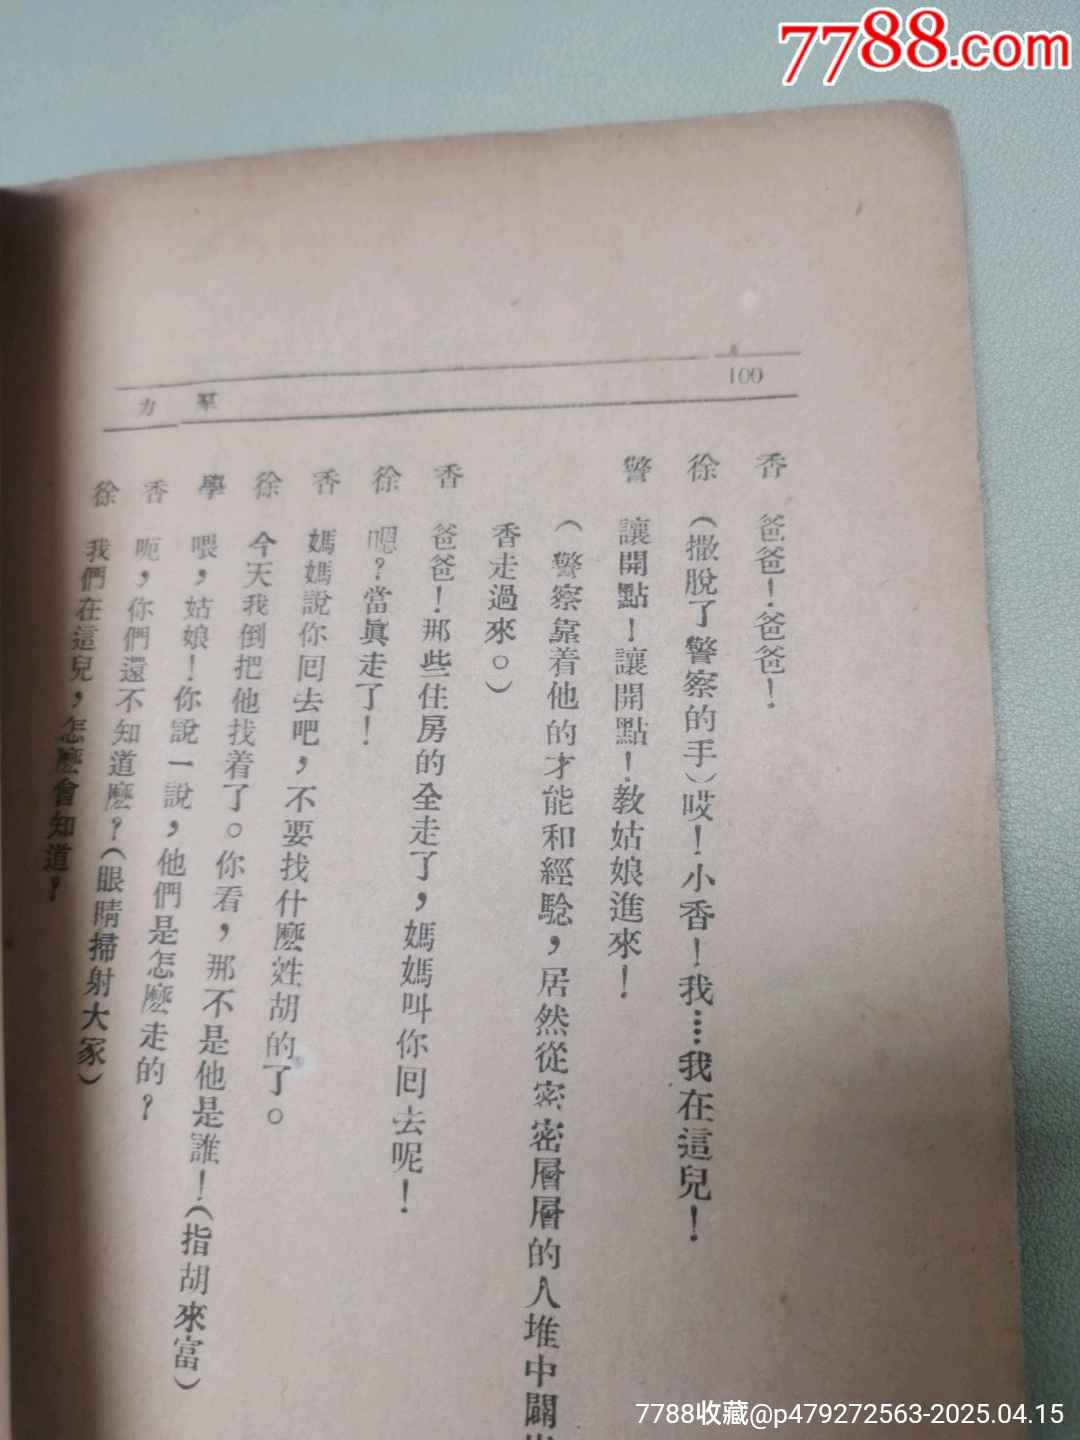 7788.com
100
羣力
香 爸爸！爸爸！
徐 （撒脫了警察的手）哎！小香！我…我在這兒！
警 讓開點！讓開點！教姑娘進來！
（警察靠着他的才能和經驗，居然從密密層層的人堆中闢
香走過來。）
香 爸爸！那些住房的全走了，媽媽叫你囘去呢！
徐 嗯？當眞走了！
香 媽媽說你囘去吧，不要找什麽姓胡的了。
徐 今天我倒把他找着了。你看，那不是他是誰！（指胡來富）
學 喂，姑娘！你說一說，他們是怎麽走的？
香 呃，你們還不知道麽？（眼睛掃射大家）
徐 我們在這兒，怎麽會知道？
7788收藏@p479272563-2025.04.15